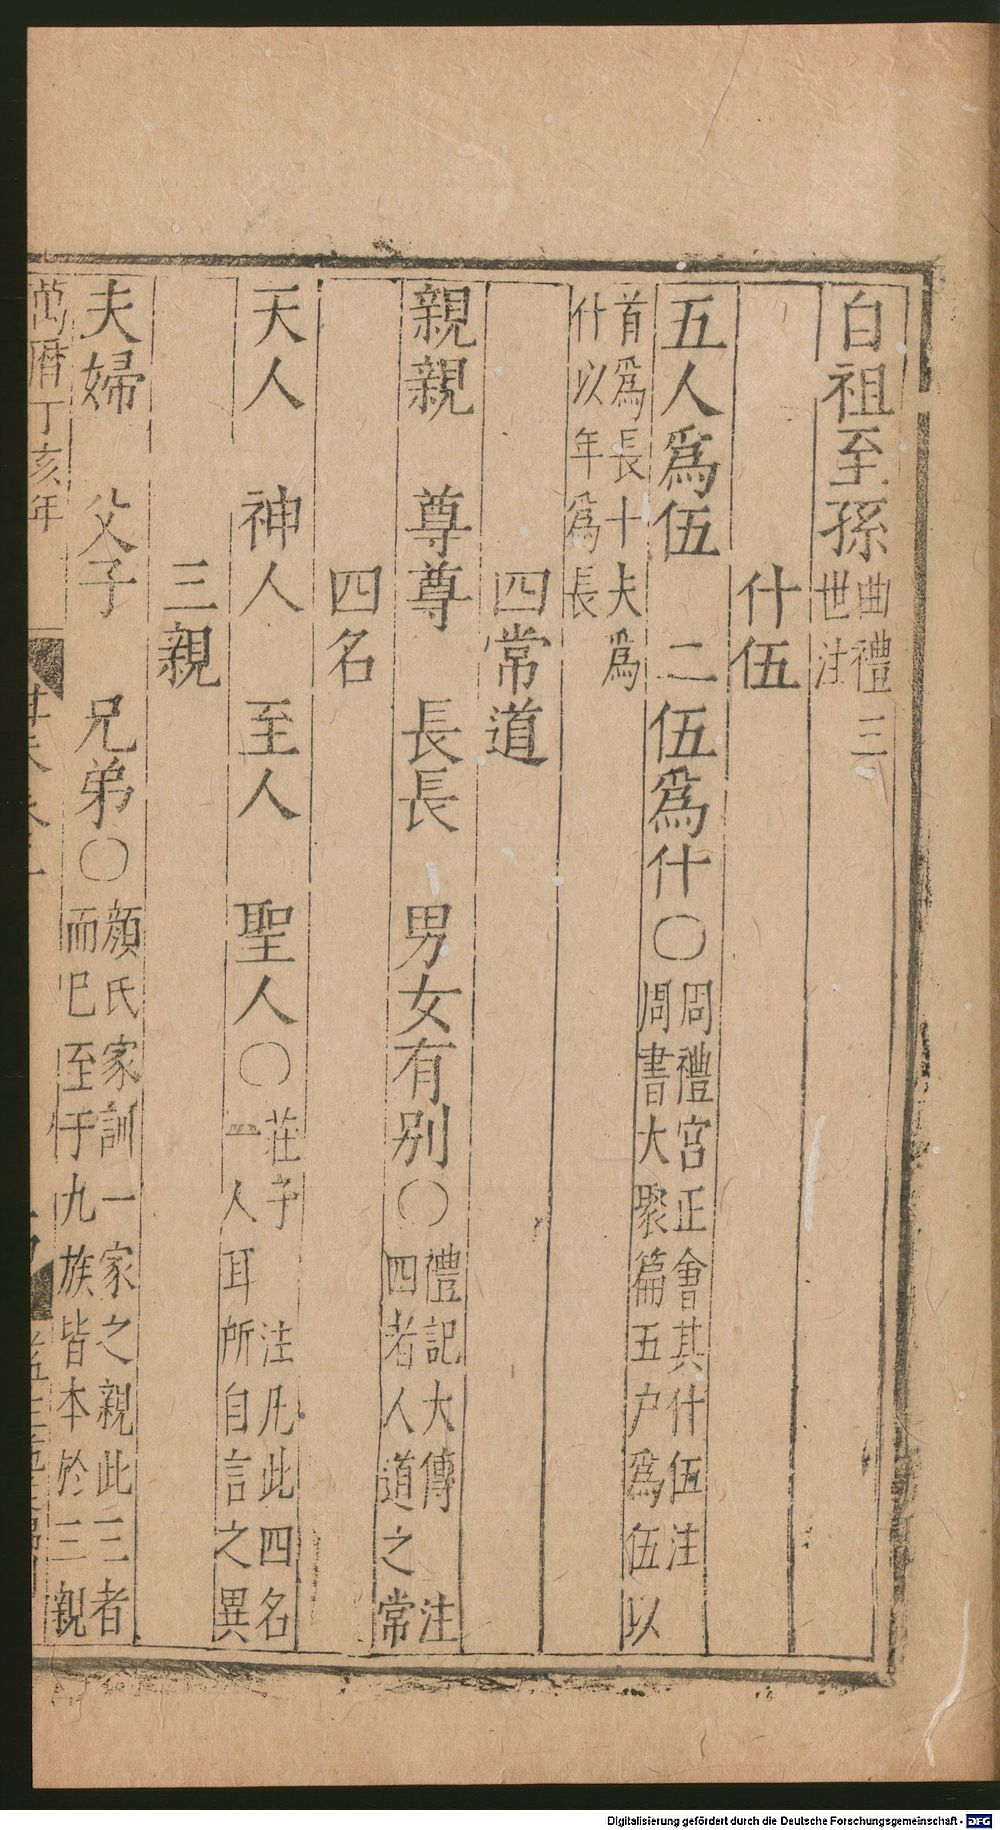 自祖至孫曲禮三
世注
什伍
五人爲伍　二伍爲什〇周禮宮正會其什伍注
周書大聚篇五户爲伍以
首爲長十夫爲
什以年爲長
四常道
親親　尊尊　長長　男女有别〇禮記大傳　注
四者人道之常
四名
天人　神人　至人　聖人〇莊子　注凡此四名
一人耳所自言之異
三親
夫婦　父子　兄弟〇顔氏家訓一家之親此三者
而已至于九族皆本於三親
萬曆丁亥年
Digitalisierung gefördert durch die Deutsche Forschungsgemeinschaft - DFG